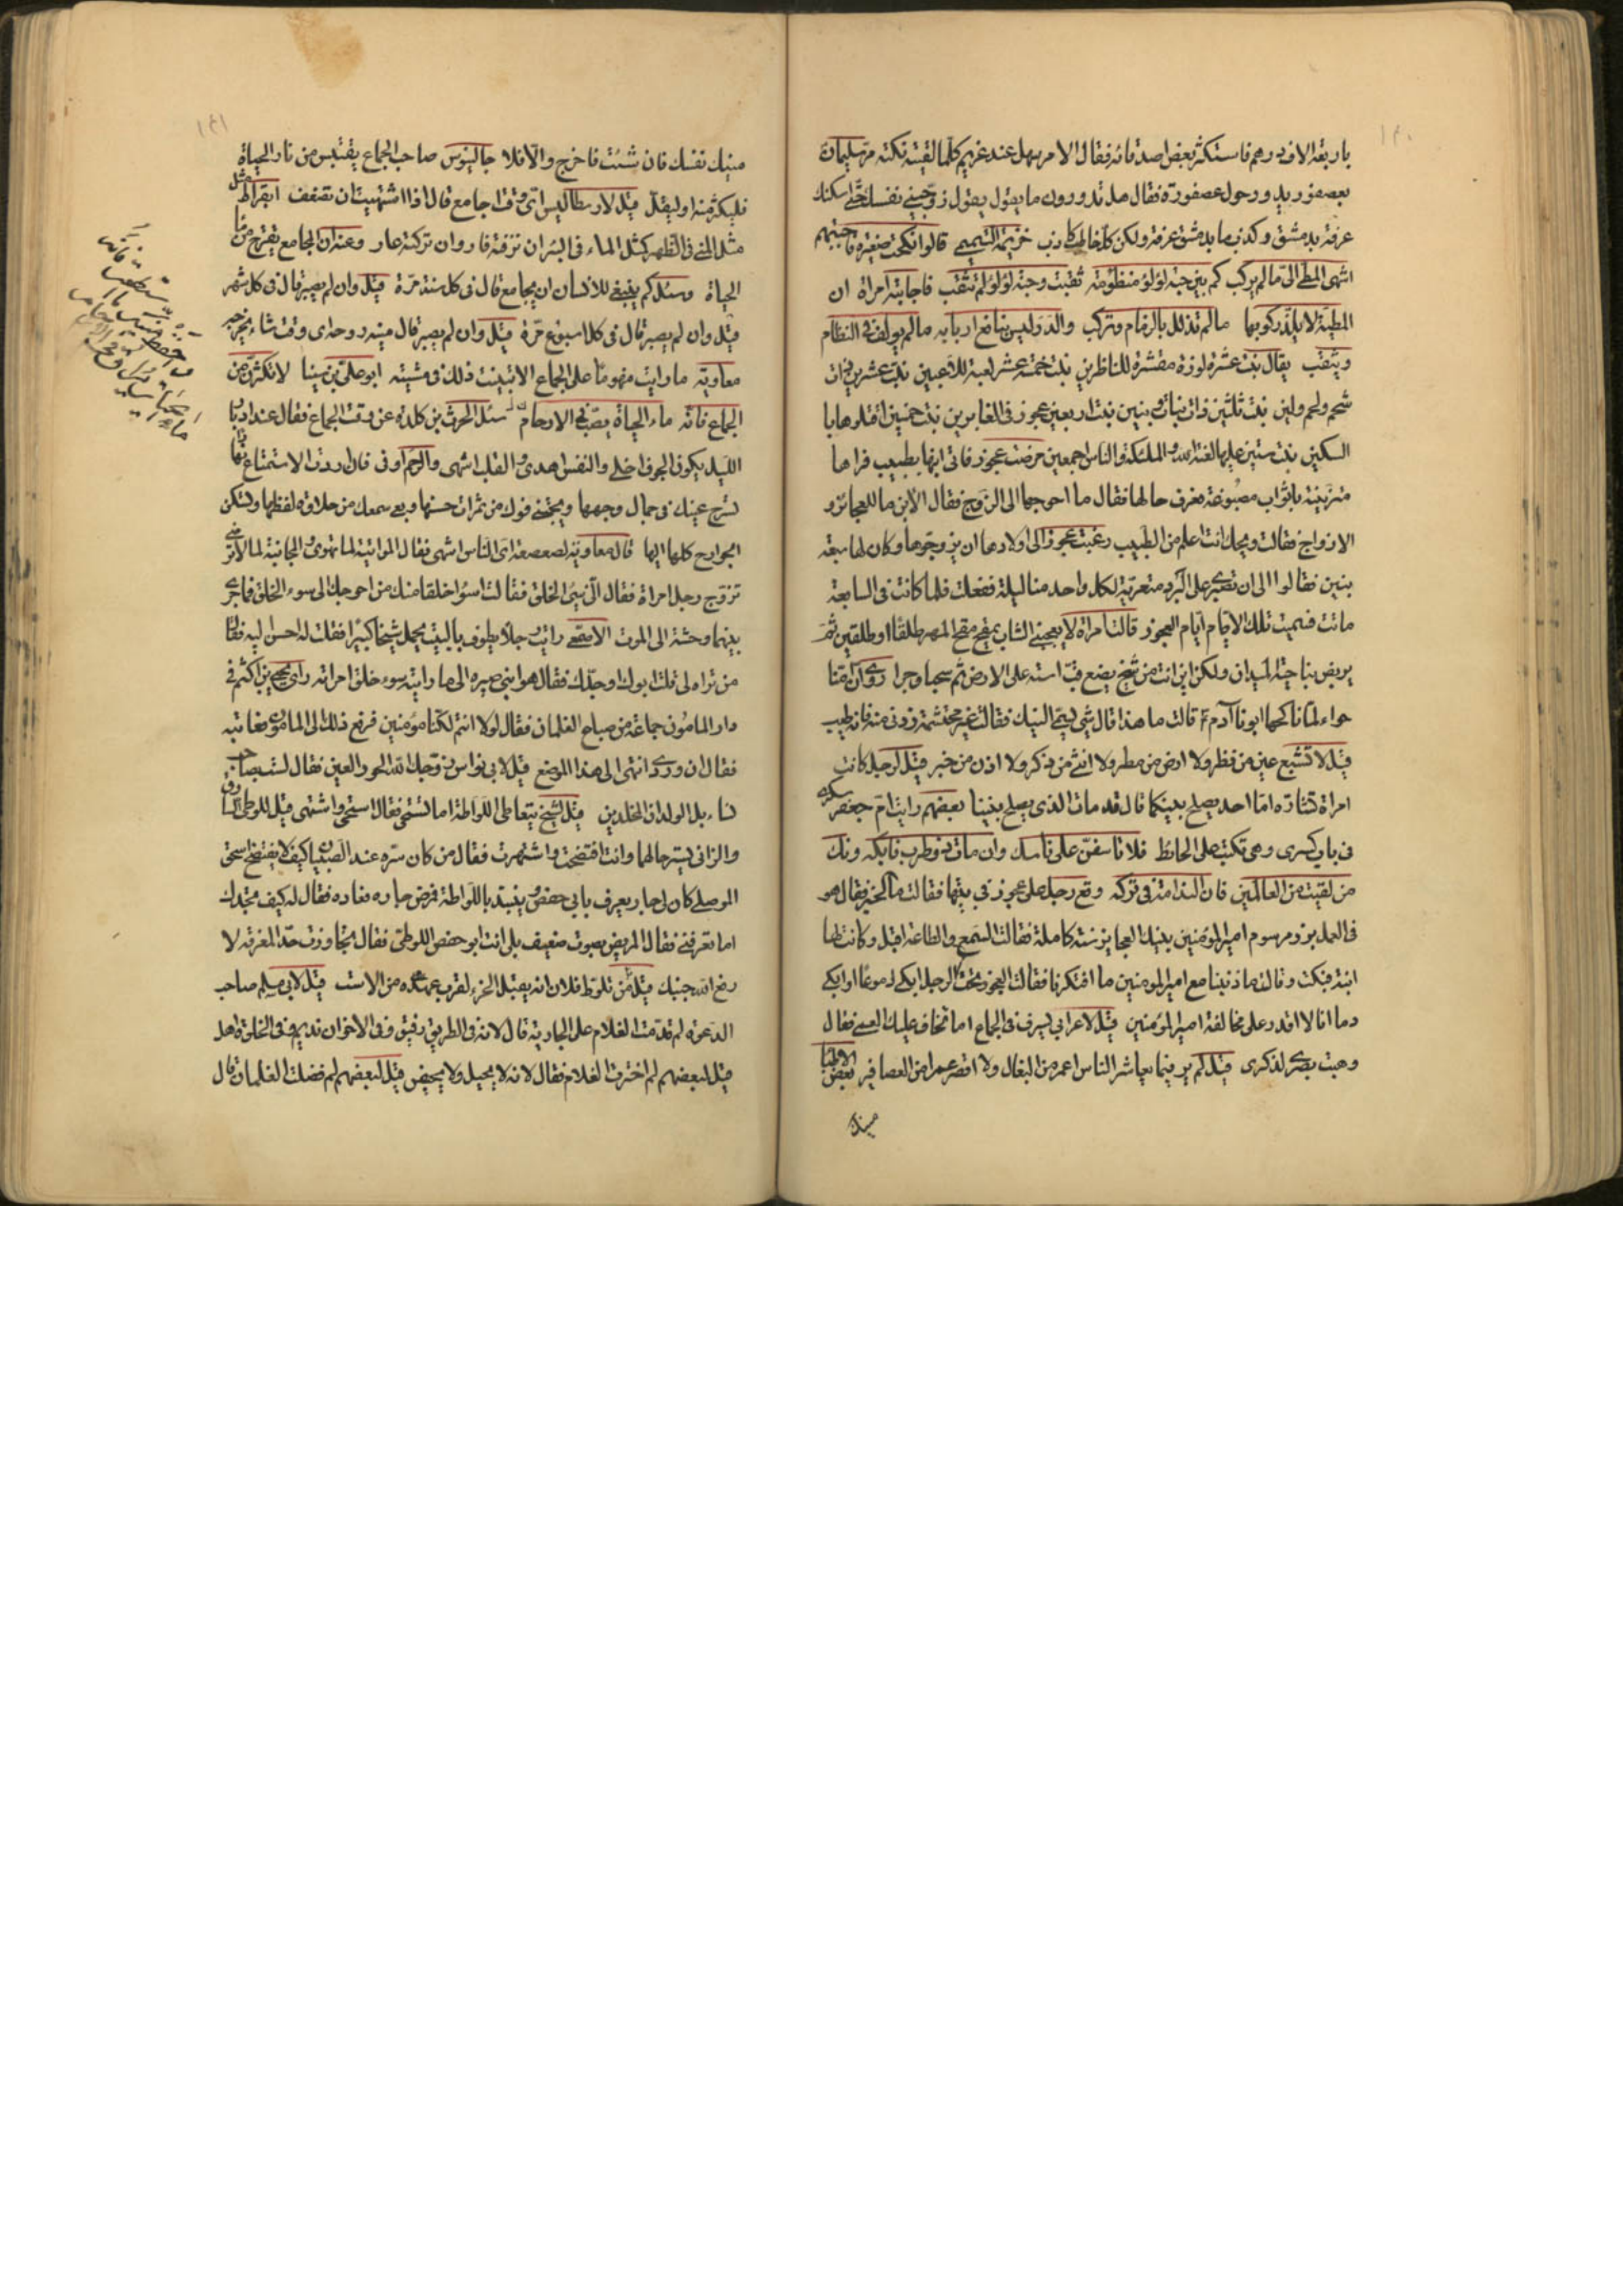 ١٤٠
باربعة الاف درهم فاستكثر بعض اصدقائه فقال الامر سهل عند غريم كلما لقيته نكته مر سليمان
بعصفور يدور حول عصفورة فقال هل تدرون ما يقول يقول زوجيني نفسك حتى اسكنك
غرفة بدمشق وكذب ما بدمشق غرفة ولكن كل خاطب كاذب خزيمة التميمي قالوا نكحت صغيرة فاجبتهم
اشهى المطى الى ما لم يركب كم بين حبة لؤلؤ منظومة ثقبت وحبة لؤلؤ لم تثقب فاجابته امراة ان
المطية لا يلذ ركوبها ما لم تذلل بالزمام وتركب والدر ليس بنافع اربابه ما لم يولف في النظام
ويثقب يقال بنت عشرة لوزة مقشرة للناظرين بنت خمسة عشر لعبة للاعبين بنت عشرين ذات
شحم ولحم ولين بنت ثلثين ذات بنات وبنين بنت اربعين عجوز في الغابرين بنت خمسين اقتلوها با
السكين بنت ستين عليها لعنة الله والملئكة والناس اجمعين مرضت عجوز فاتى ابنها بطبيب فراها
متزينة باثواب مصبوغة فعرف حالها فقال ما احوجها الى الزوج فقال الابن ما للعجائز و
الازواج فقالت ويحك انت اعلم من الطبيب رغبت عجوز الى اولادها ان يزوجوها وكان لها سبعة
بنين فقالوا الى ان تصبرى على البرد متعرية لكل واحد منا ليلة ففعلت فلما كانت في السابعة
ماتت فسميت تلك الايام ايام العجوز قالت امراة لا يعجبني الشاب يمعج معج المهر طلقا او طلقين ثم
يربض بناحية الميدان ولكن اين انت من شيخ يضع قب استه على الارض ثم سحبا وجرا روى ان امنا
حواء لما ناكحها ابونا آدم قالت ما هذا قال شئ يسمى النيك فقالت غير محتشمة زدنى منه فانه طيب
قيل لا تشبع عين من نظر ولا ارض من مطر ولا انثى من ذكر ولا اذن من خبر قيل لرجل كانت
امراة تشاره اما احد يصلح بينكما قال قد مات الذى يصلح بيننا بعضهم رايت ام جعفر سكرى
في باب كسرى وهي تكتب على الحائط فلا تاسفن على ناسك وان مات ذو طرب فابكه ونك
من لقيت من العالمين فان الندامة في تركه وقع رجل على عجوز في بيتها فقالت ما الخبر فقال هو
في العمل برز مرسوم امير المؤمنين بنيك العجايز سنة كاملة فقالت السمع والطاعة اقبل وكانت لها
ابنة فبكت وقالت ما ذنبنا مع امير المومنين ما افتكرنا فقالت العجوز تحت الرجل ابكى دموعا او ابكى
دما انا لا اقدر على مخالفة امير المؤمنين قيل لاعرابي يسرف في الجماع اما تخاف عليك العمى فقال
وهبت بصرى لذكرى قيل لم ير فيما يعاشر الناس اعمر من البغال ولا اقصر عمرا من العصافير بعض الاطبا
منيك
١٤١
منيك نفسك فان شئت فاخرج والا فلا جالينوس صاحب الجماع يقتبس من نار الحياة
فليكثر منه او ليقلل قيل لارسطاليس اى وقت اجامع قال اذا اشتهيت ان تضعف ابقراط مثل
مثل المني في الظهر كمثل الماء في البئر ان نزفته فار وان تركته غار وعنه ان المجامع يقترح من ماء
الحياة وسئل كم ينبغي للانسان ان يجامع قال في كل سنة مرة قيل وان لم يصبر قال في كل شهر
قيل وان لم يصبر قال في كل اسبوع مرة قيل وان لم يصبر قال ميته روحه اى وقت شاء يخرجه
معاوية ما رايت منهوما على الجماع الا تبينت ذلك في مشيته ابو على بن سينا لا تكثرن من
الجماع فانه ماء الحياة يصب في الارحام سئل الحرث بن كلدة عن وقت الجماع فقال عند ادبار
الليل يكون الجوف اخلى والنفس اهدى والقلب اشهى والرحم اوفى فان اردت الاستمتاع بها
تسرح عينك في جمال وجهها ويجتنى فوك من ثمرات حسنها ويعى سمعك من حلاوة لفظها وتسكن
الجوارح كلها اليها قال معاوية لصعصعة اى الناس اشهى فقال المواتية لما تهوى والمجانبة لما لا ترضى
تزوج رجل امراة فقال انى سئ الخلق فقالت اسؤ خلقا منك من احوجك الى سوء الخلق فما جرى
بينهما وحشة الى الموت الاصمعى رايت رجلا يطوف بالبيت يحمل شيخا كبيرا فقلت له احسن اليه فقال
من تراه لى قلت ابوك او جدك فقال هو ابني صيره الى ما رايته سوء خلق امراته راى يحيى بن اكثم في
دار المامون جماعة من صباح الغلمان فقال لولا انتم لكنا مؤمنين فرفع ذلك الى المامون فعاتبه
فقال ان وردى انتهى الى هذا الموضع قيل لابي نواس زوجك الله الحور العين فقال لست بصاحب
نساء بل الولدان المخلدين قيل لشيخ يتعاطى اللواطة اما تستحى فقال استحى واشتهى قيل للوطى السارق
والزاني يستر حالهما وانت افتضحت واشتهرت فقال من كان سره عند الصبيان كيف لا يفتضح اسحق
الموصلى كان لى جار يعرف بابي حفص وينبذ باللواطة فمرض جاره فعاده فقال له كيف تجدك
اما تعرفني فقال المريض بصوت ضعيف بلى انت ابو حفص اللوطى فقال تجاوزت حد المعرفة لا
رفع الله جنبك قيل لمن تلوط فلان انه يقبل الخرء لقرب عهده من الاست قيل لابي مسلم صاحب
الدعوة لم قدمت الغلام على الجارية قال لانه في الطريق رفيق وفي الاخوان نديم وفي الخلوة اهل
قيل لبعضهم لم اخترت الغلام فقال لانه لا يحبل ولا يحيض قيل لبعضهم لم فضلت الغلمان قال
واحفظ منيك ما استطعت فانه
ماء الحياة يراق في الارحام